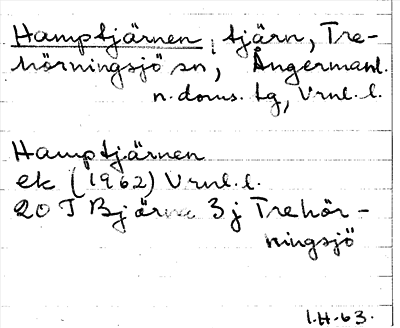 Hamptjärnen, tjärn, Tre-
hörningsjö sn, Ångermanl.
n. doms. tg, Vrnl. l.
Hamptjärnen
ek (1962) Vrnl. l.
20 J Björna 3j Trehör-
ningsjö
I.H-63.